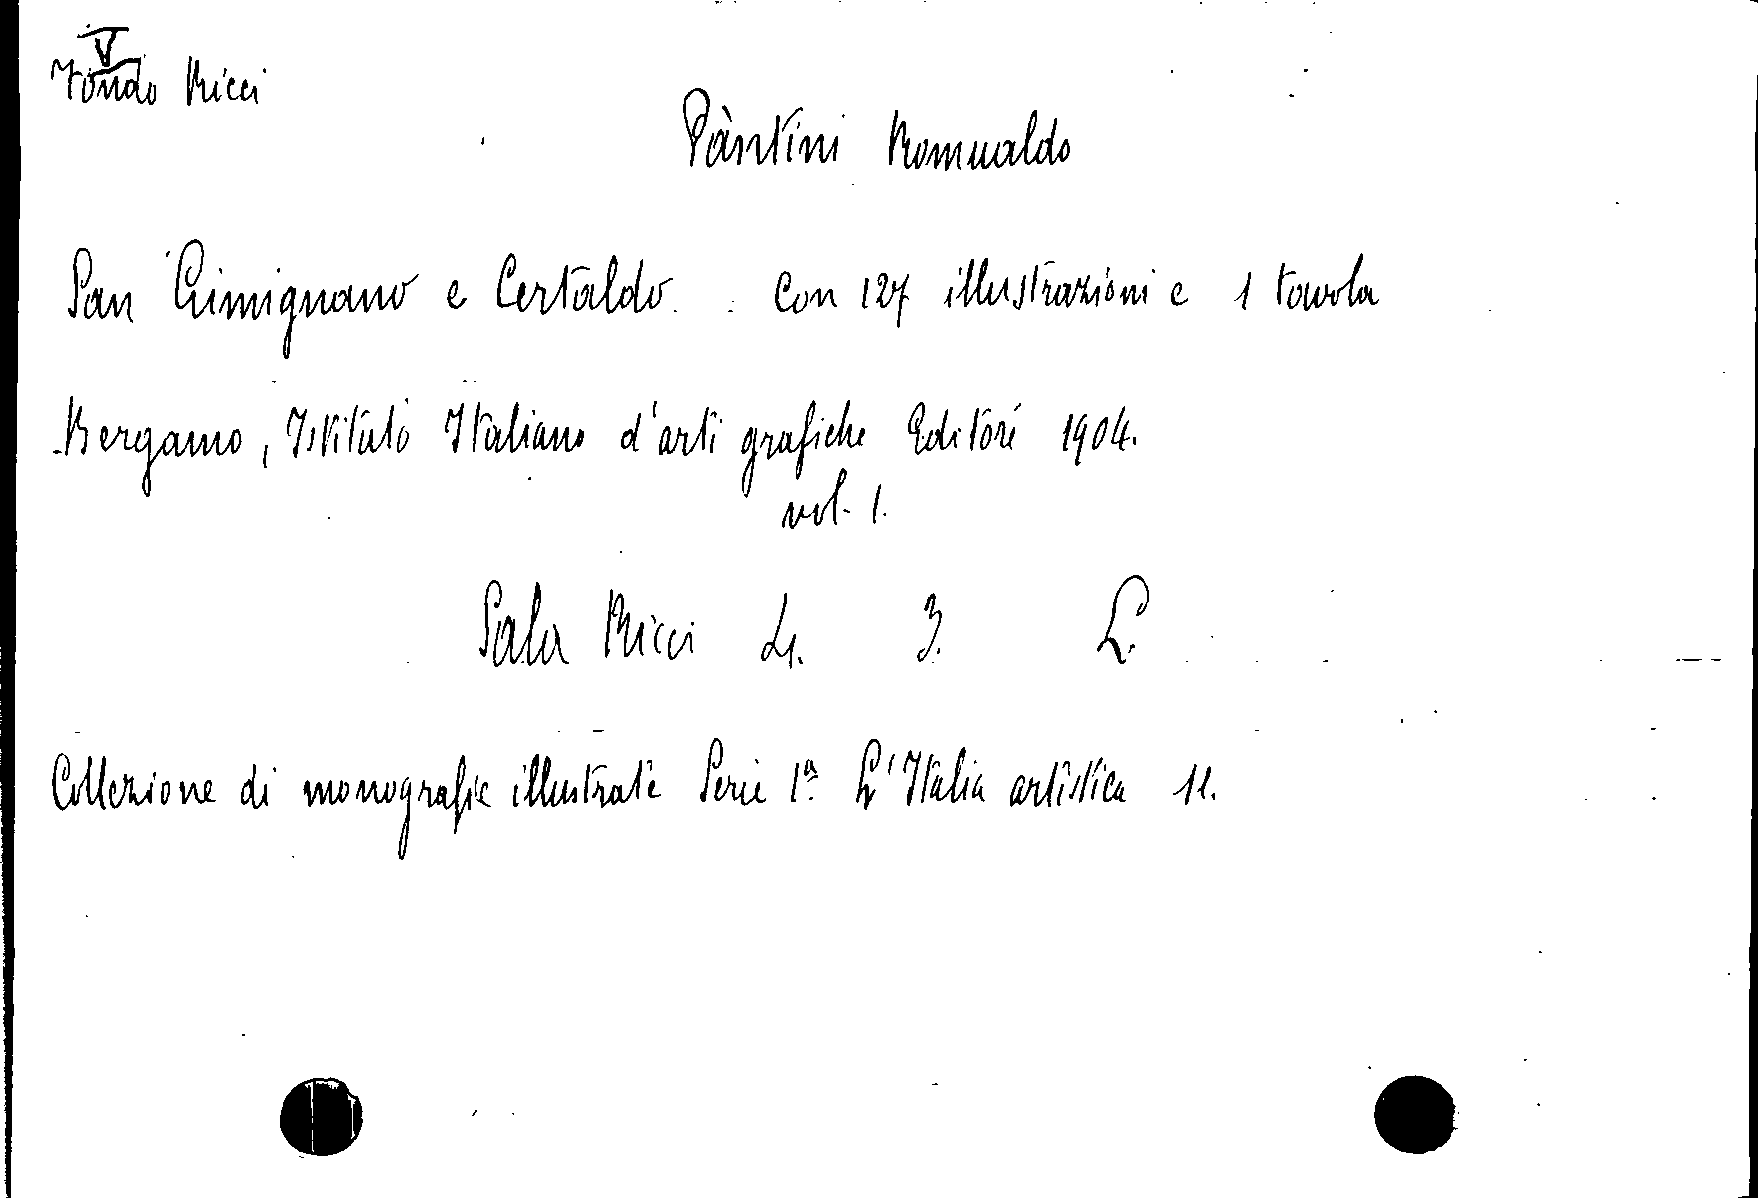 V
Fondo Ricci
Pàntini Romualdo
San Gimignano e Certaldo. Con 127 illustrazioni e 1 tavola
Bergamo, Istituto Italiano d'arti grafiche Editore 1904.
vol. 1.
Sala Ricci 4. 3. L.
Collezione di monografie illustrate Serie 1ª L'Italia artistica 11.